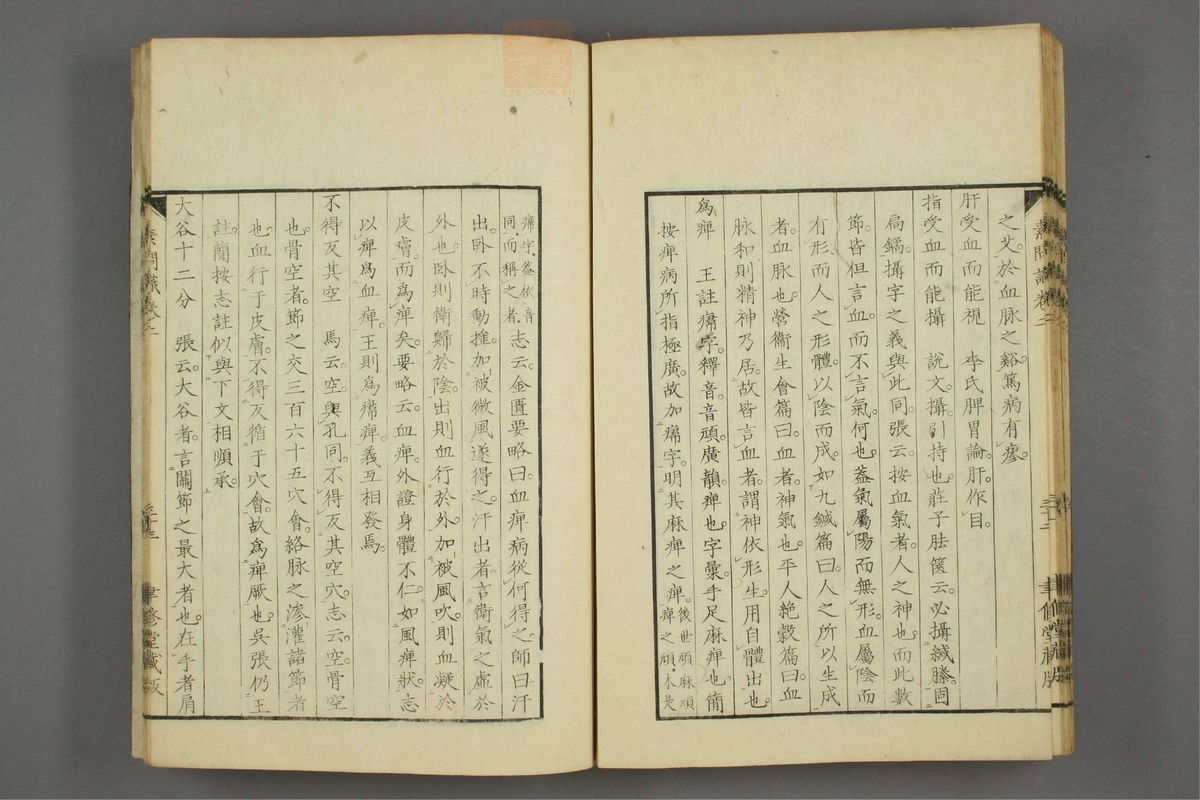 之艾於血脉之谿篤病有瘳
肝受血而能視　李氏脾胃論肝作目
指受血而能攝　說文攝引持也莊子胠篋云必攝緘縢固
扃鐍攝字之義與此同張云按血氣者人之神也而此數
節皆但言血而不言氣何也蓋氣屬陽而無形血屬陰而
有形而人之形體以陰而成如九鍼篇曰人之所以生成
者血脉也營衞生會篇曰血者神氣也平人絶穀篇曰血
脉和則精神乃居故皆言血者謂神依形生用自體出也
爲痺　王註㾯字釋音音頑廣韻痺也字彙手足麻痺也簡
按痺病所指極廣故加㾯字明其麻痺之痺後世頑麻頑痺之頑本是
㾯字蓋依音同而稱之者志云金匱要略曰血痺病從何得之師曰汗
出臥不時動搖加被微風遂得之汗出者言衞氣之虛於
外也臥則衞歸於陰出則血行於外加被風吹則血凝於
皮膚而爲痺矣要略云血痺外證身體不仁如風痺狀志
以痺爲血痺王則爲㾯痺義互相發焉
不得反其空　馬云空與孔同不得反其空穴志云空骨空
也骨空者節之交三百六十五穴會絡脉之滲灌諸節者
也血行于皮膚不得反循于穴會故爲痺厥也吳張仍王
註簡按志註似與下文相順承
大谷十二分　張云大谷者言關節之最大者也在手者肩
素問識卷二
聿修堂藏版